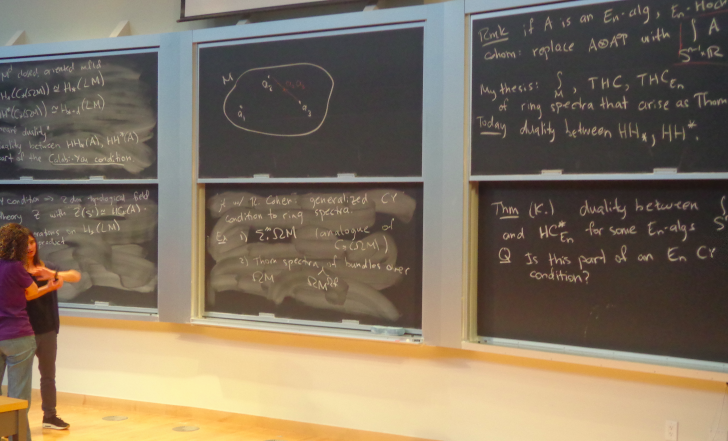 M closed, oriented mfld
H₀(C₀(ΩM)) ≃ H₀(LM)
duality between HH_*(A), HH^*(A)
part of the Calabi-Yau condition
topological field
theory Z with Z(S¹) =
in H_*(LM)
product
M
a₂
a₁
a₃
w R Cohen: generalized CY
condition to ring spectra.
Ex 1) Σ^∞_+ ΩM (analogue of
C_*(ΩM))
2) Thom spectra of bundles over
ΩM
Rmk if A is an E_n-alg, E_n-Hoch
cohom: replace A⊗A^op with ∫ A
S^{n-1}×ℝ
My thesis: ∫_M, THC, THC_{E_n}
of ring spectra that arise as Thom
Today duality between HH_*, HH^*.
Thm (K.) duality between ∫
and HC^*_{E_n} for some E_n-algs
Q Is this part of an E_n CY
condition?